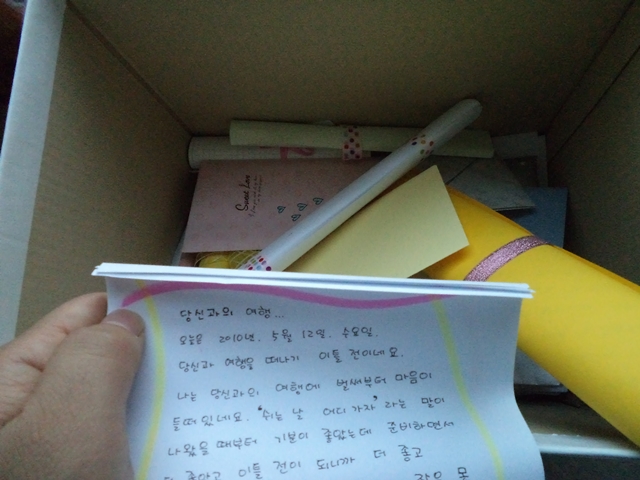 Sweet Love
당신과의 여행...
오늘은 2010년. 5월 12일. 수요일.
당신과 여행을 떠나기 이틀 전이네요.
나는 당신과의 여행에 벌써부터 마음이
들떠 있네요. '쉬는 날 어디 가자' 라는 말이
나왔을 때부터 기분이 좋았는데 준비하면서
더 좋았고 이틀 전이 되니까 더 좋고